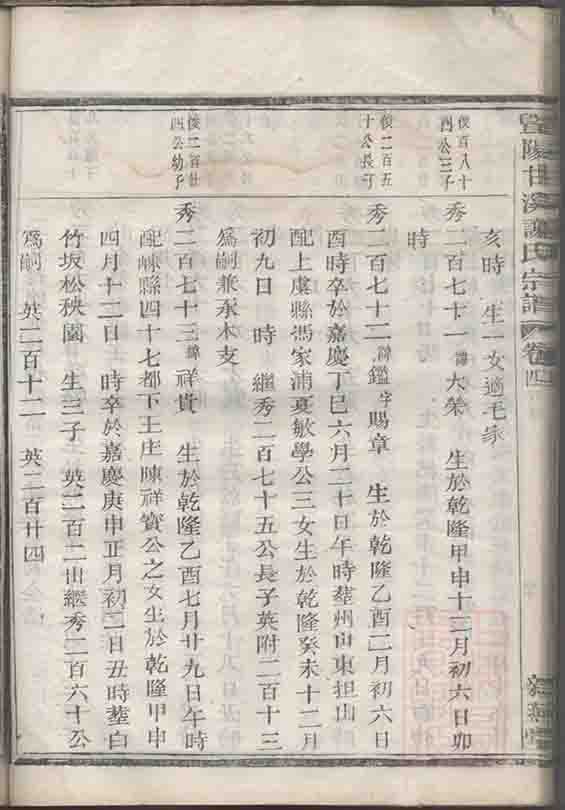 暨陽甘溪謝氏宗譜 卷四
亥時 生一女適毛家
俊百八十四公三子
秀二百七十一諱大榮 生於乾隆甲申十二月初六日卯
時
俊二百五十公長子
秀二百七十二諱鑑字賜章 生於乾隆乙酉二月初六日
酉時卒於嘉慶丁巳六月二十日午時塟州山東担山
配上虞縣馮家浦夏敏學公三女生於乾隆癸未十二月
初九日 時 繼秀二百七十五公長子英附二百十三
為嗣兼承本支
俊二百廿四公幼子
秀二百七十三諱祥貴 生於乾隆乙酉七月廿九日午時
配嵊縣四十七都下王庄陳祥寳公之女生於乾隆甲申
四月十二日 時卒於嘉慶庚申正月初二日丑時塟白
竹坂松秧園 生三子 英二百二出繼秀二百六十公
為嗣 英二百十二 英二百廿四